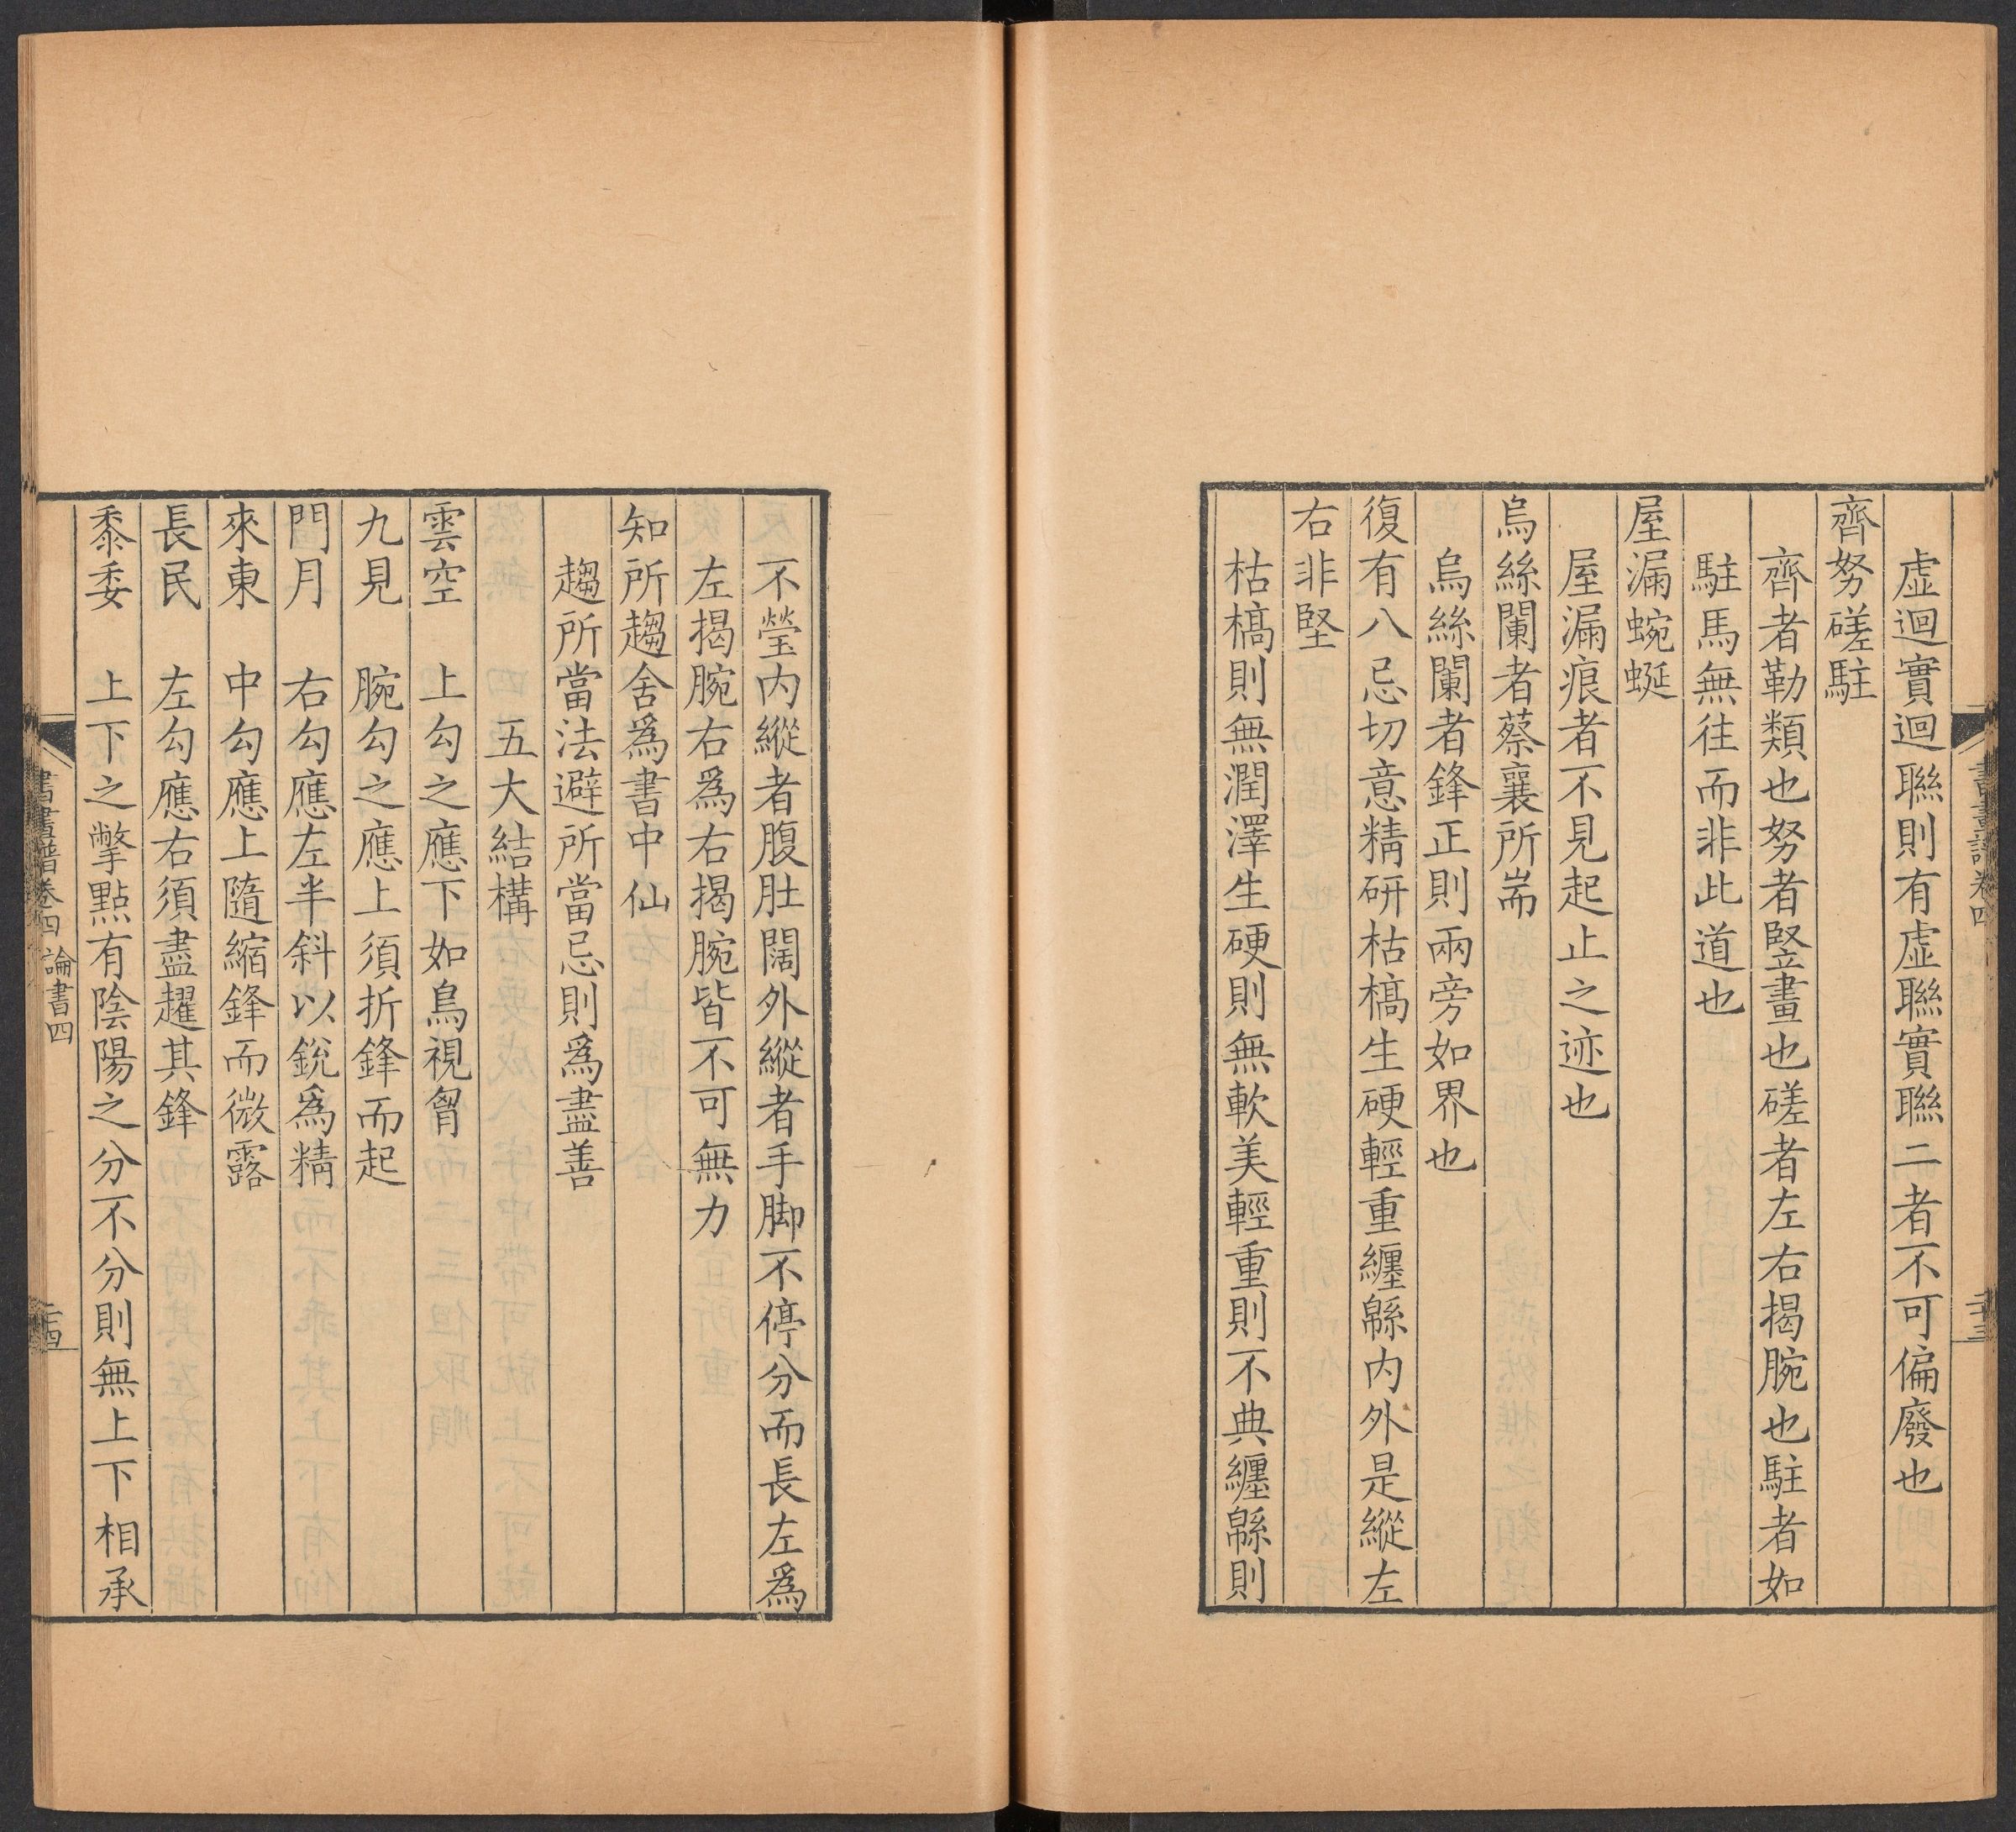 虛迴實迴聯則有虛聯實聯二者不可偏廢也
齊努磋駐
齊者勒類也努者竪畫也磋者左右揭腕也駐者如
駐馬無往而非此道也
屋漏蜿蜒
屋漏痕者不見起止之迹也
烏絲闌者蔡襄所耑
烏絲闌者鋒正則兩旁如界也
復有八忌切意精研枯槁生硬輕重纏緜内外是縱左
右非堅
枯槁則無潤澤生硬則無軟美輕重則不典纏緜則
不瑩内縱者腹肚闊外縱者手脚不停分而長左爲
左揭腕右爲右揭腕皆不可無力
知所趨舍爲書中仙
趨所當法避所當忌則爲盡善
五大結構
雲空 上勾之應下如鳥視胷
九見 腕勾之應上須折鋒而起
門月 右勾應左半斜以銳爲精
來東 中勾應上隨縮鋒而微露
長民 左勾應右須盡趯其鋒
黍委 上下之撆點有陰陽之分不分則無上下相承
書畫譜卷四 論書四 二十四